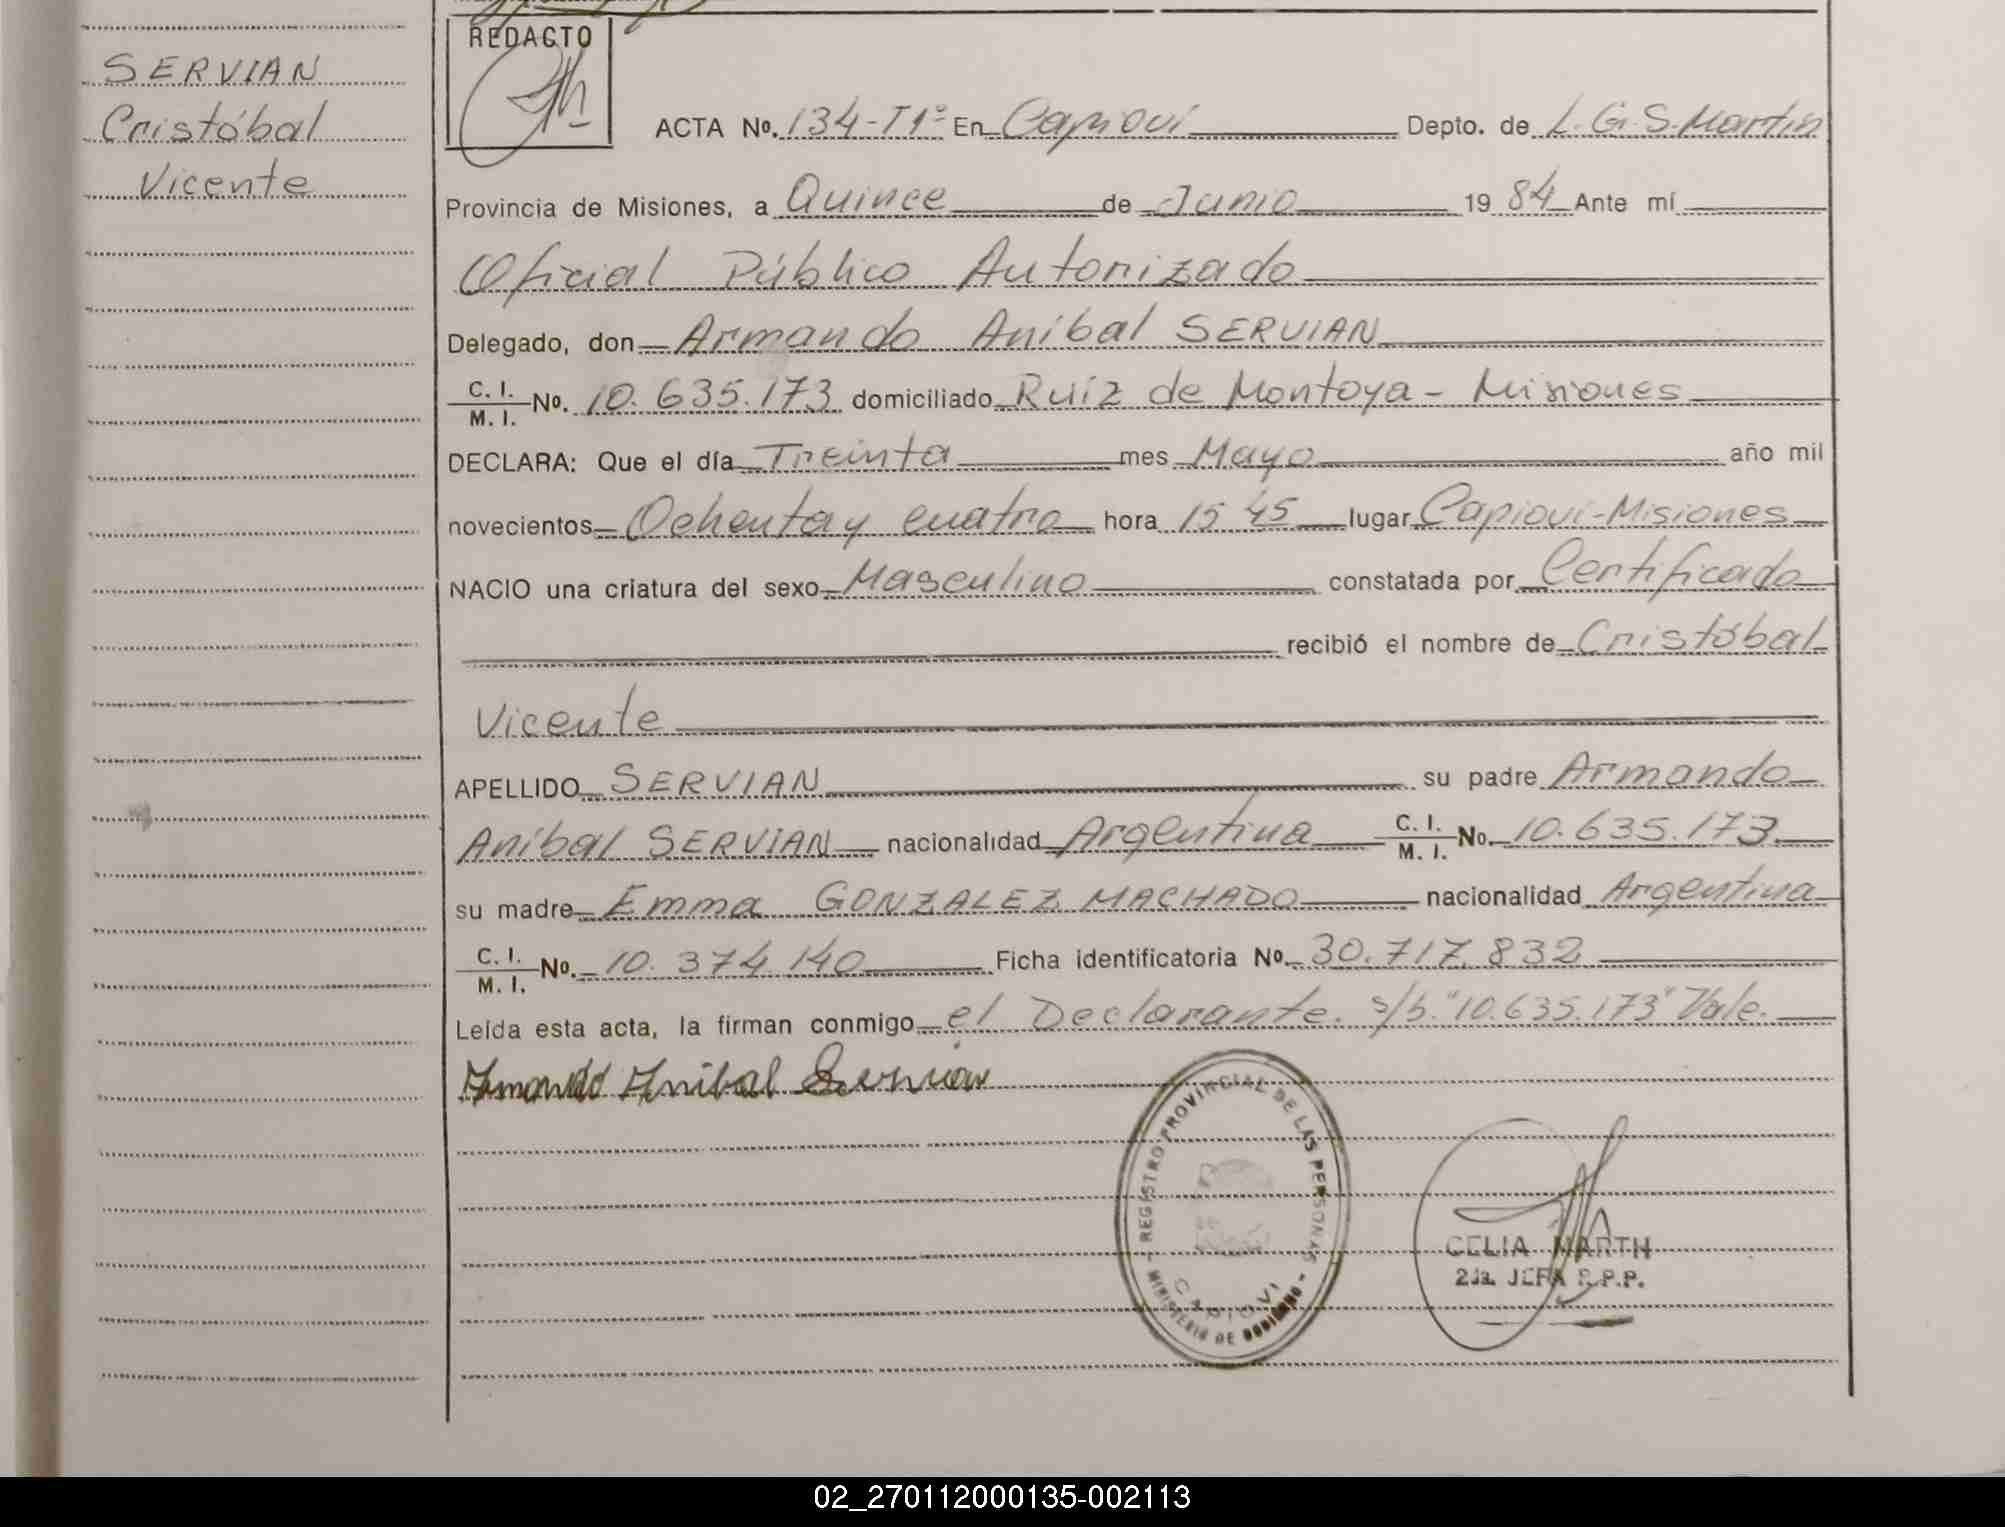 SERVIAN
Cristóbal
Vicente
REDACTO
ACTA No. 134-T1º En Capiovi Depto. de L.G.S.Martin
Provincia de Misiones, a Quince de Junio 19 84 Ante mí
Oficial Público Autorizado
Delegado, don Armando Anibal SERVIAN
C. I. / M. I. No. 10.635.173 domiciliado Ruiz de Montoya - Misiones
DECLARA: Que el día Treinta mes Mayo año mil
novecientos Ochenta y cuatro hora 15 45 lugar Capiovi-Misiones
NACIO una criatura del sexo Masculino constatada por Certificado
recibió el nombre de Cristóbal
Vicente
APELLIDO SERVIAN su padre Armando
Anibal SERVIAN nacionalidad Argentina C. I. / M. I. No. 10.635.173
su madre Emma GONZALEZ MACHADO nacionalidad Argentina
C. I. / M. I. No. 10.374.140 Ficha identificatoria No. 30.717.832
Leída esta acta, la firman conmigo el Declarante. s/b."10.635.173" Vale.
Armando Anibal Servian
REGISTRO PROVINCIAL DE LAS PERSONAS
MINISTERIO DE GOBIERNO
CAPIOVI
CELIA MARTH
2da. JEFA R.P.P.
02_270112000135-002113